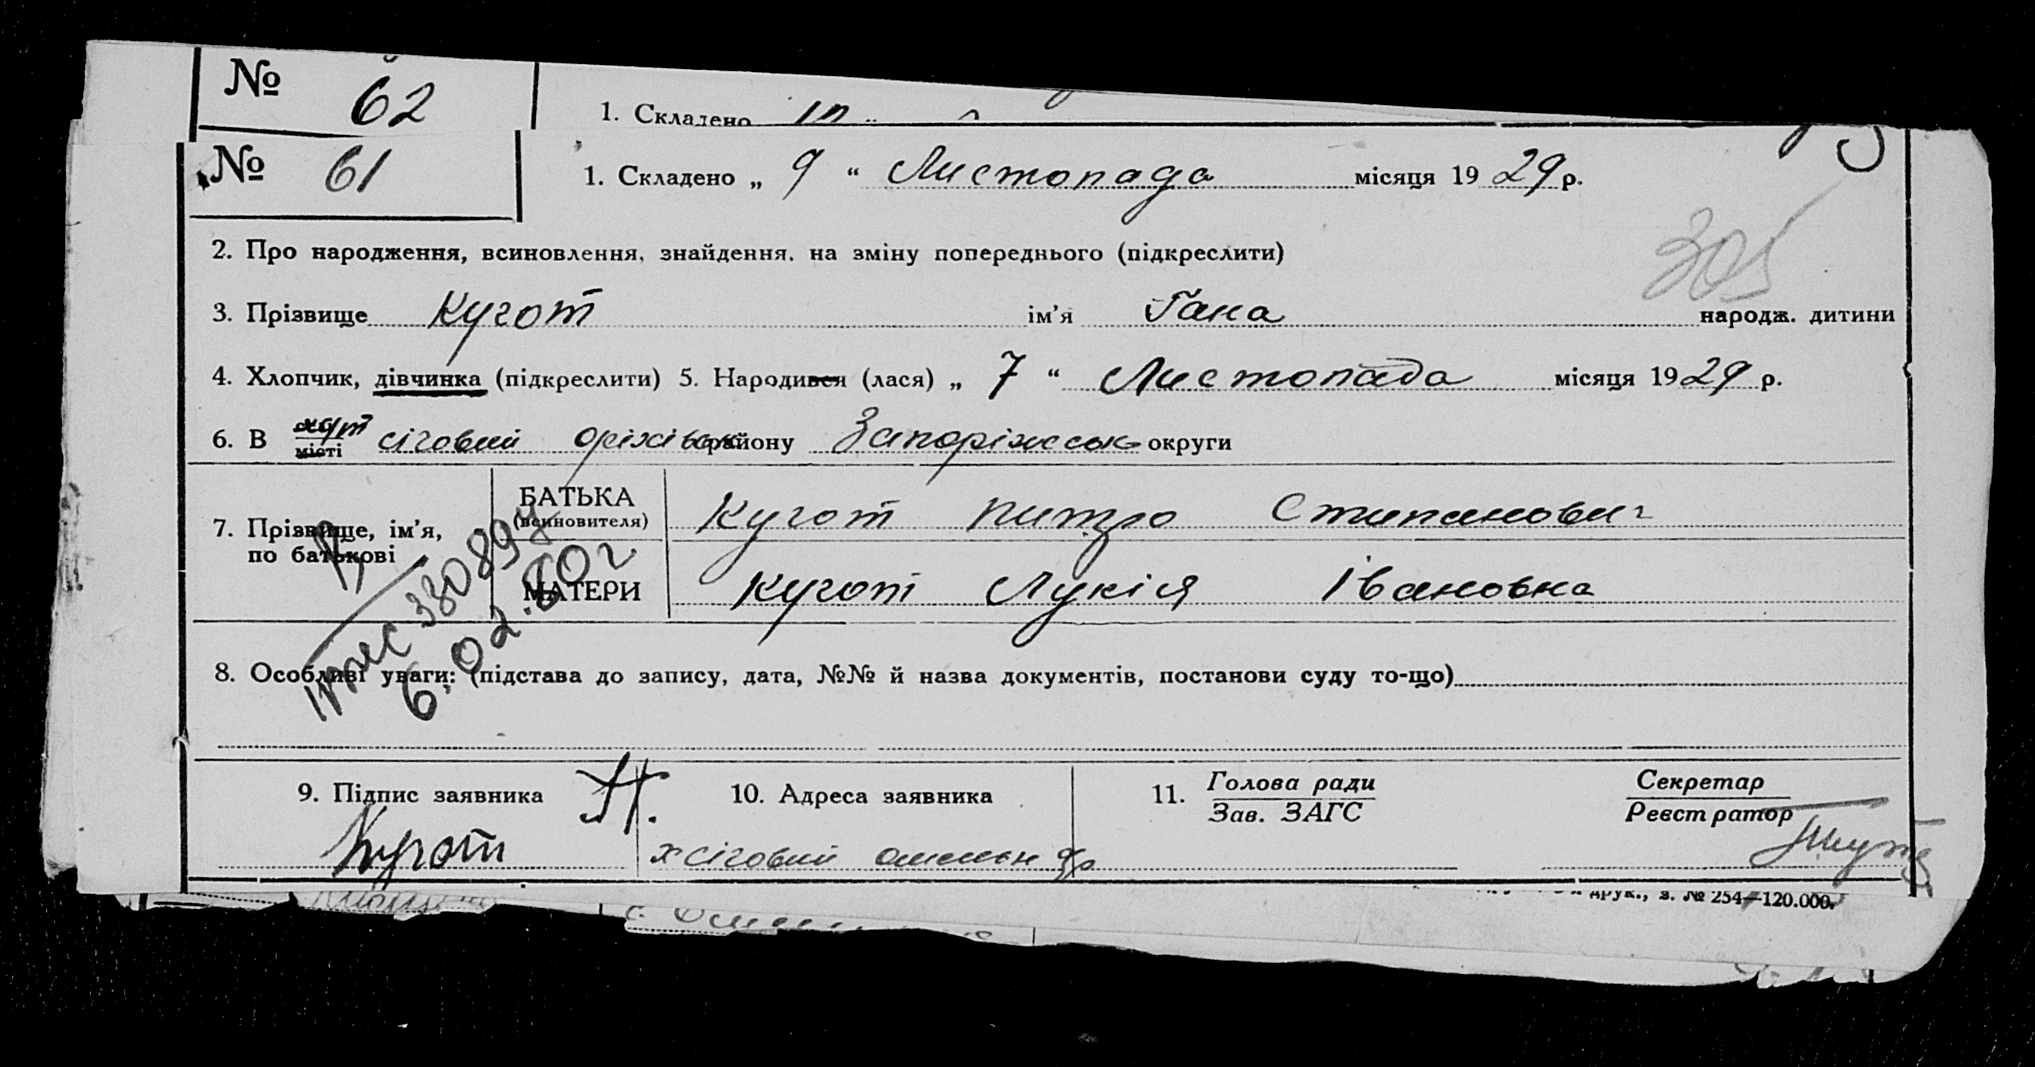 № 62
1. Складено
№ 61
1. Складено „ 9 “ Листопада місяця 1929 р.
2. Про народження, всиновлення, знайдення, на зміну попереднього (підкреслити)
305
3. Прізвище Кугот ім'я Гана народж. дитини
4. Хлопчик, дівчинка (підкреслити) 5. Народився (лася) „ 7 “ Листопада місяця 1929 р.
6. В хут місті сіговий оріхівськ району Запоріжськ округи
7. Прізвище, ім'я, по батькові
БАТЬКА (всиновителя) Кугот Питро Стипанович
МАТЕРИ Кугот Лукія Івановна
6.02.80 г
8. Особливі уваги: (підстава до запису, дата, №№ й назва документів, постанови суду то-що)
9. Підпис заявника
10. Адреса заявника
11. Голова ради Зав. ЗАГС
Секретар Реєстратор
Кугот
х сіговий
друк., з. № 254—120.000.